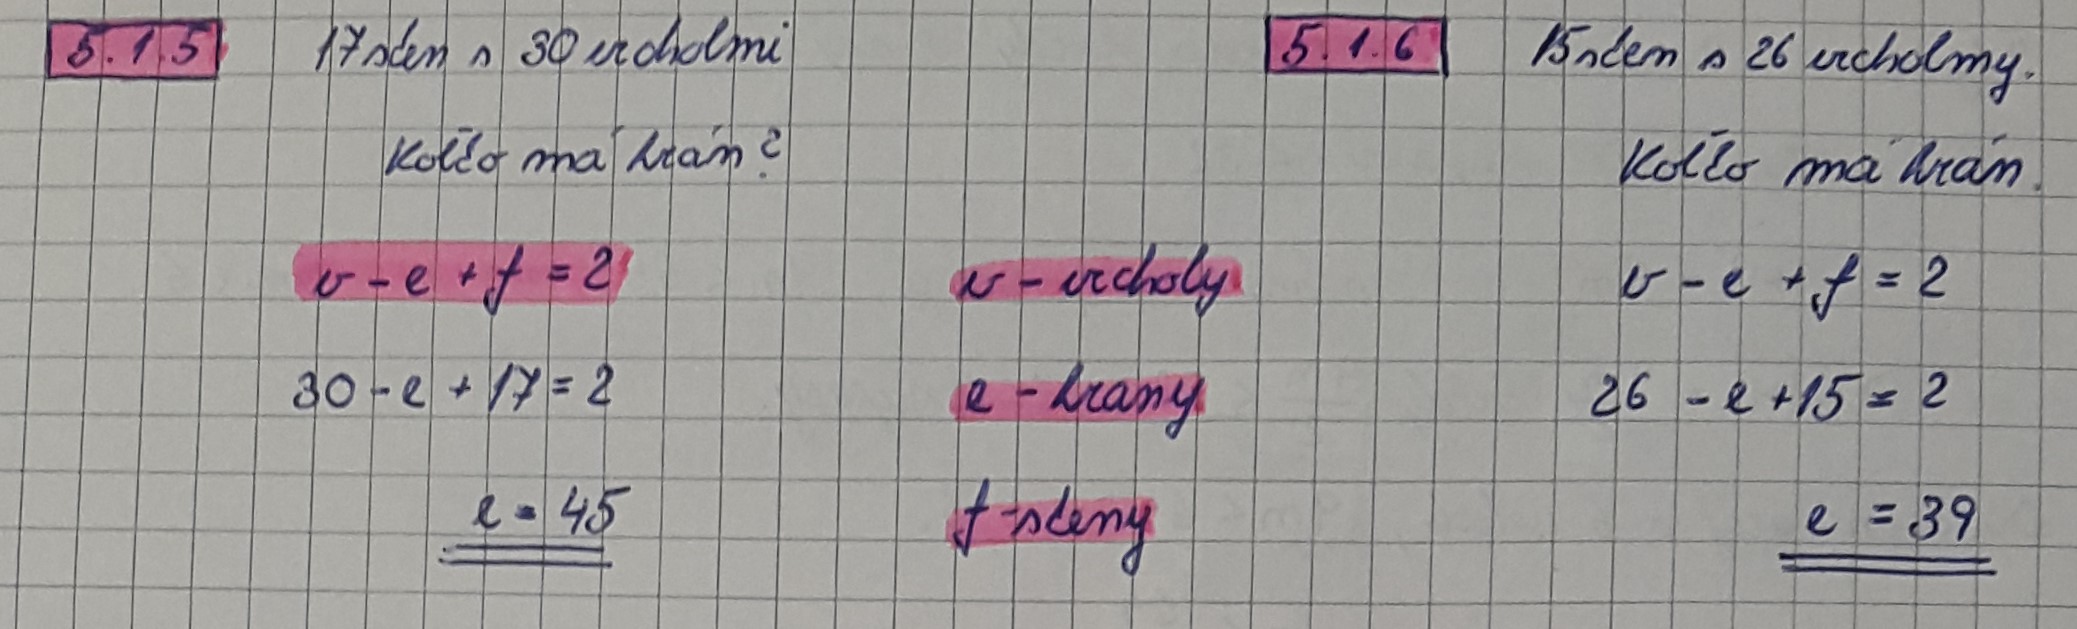 5.1.5
17sten s 30 vrcholmi
Koľko má hrán?
v - e + f = 2
30 - e + 17 = 2
e = 45
v - vrcholy
e - hrany
f - steny
5.1.6
15sten s 26 vrcholmy.
Koľko má hrán.
v - e + f = 2
26 - e + 15 = 2
e = 39